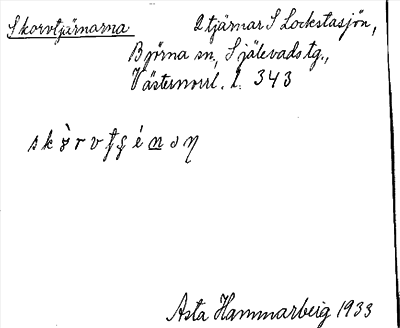 Skorvtjärnarna 2 tjärnar S Lockstasjön,
Björna sn, Själevads tg.,
Västernorrl. l. 343
Asta Hammarberg 1933